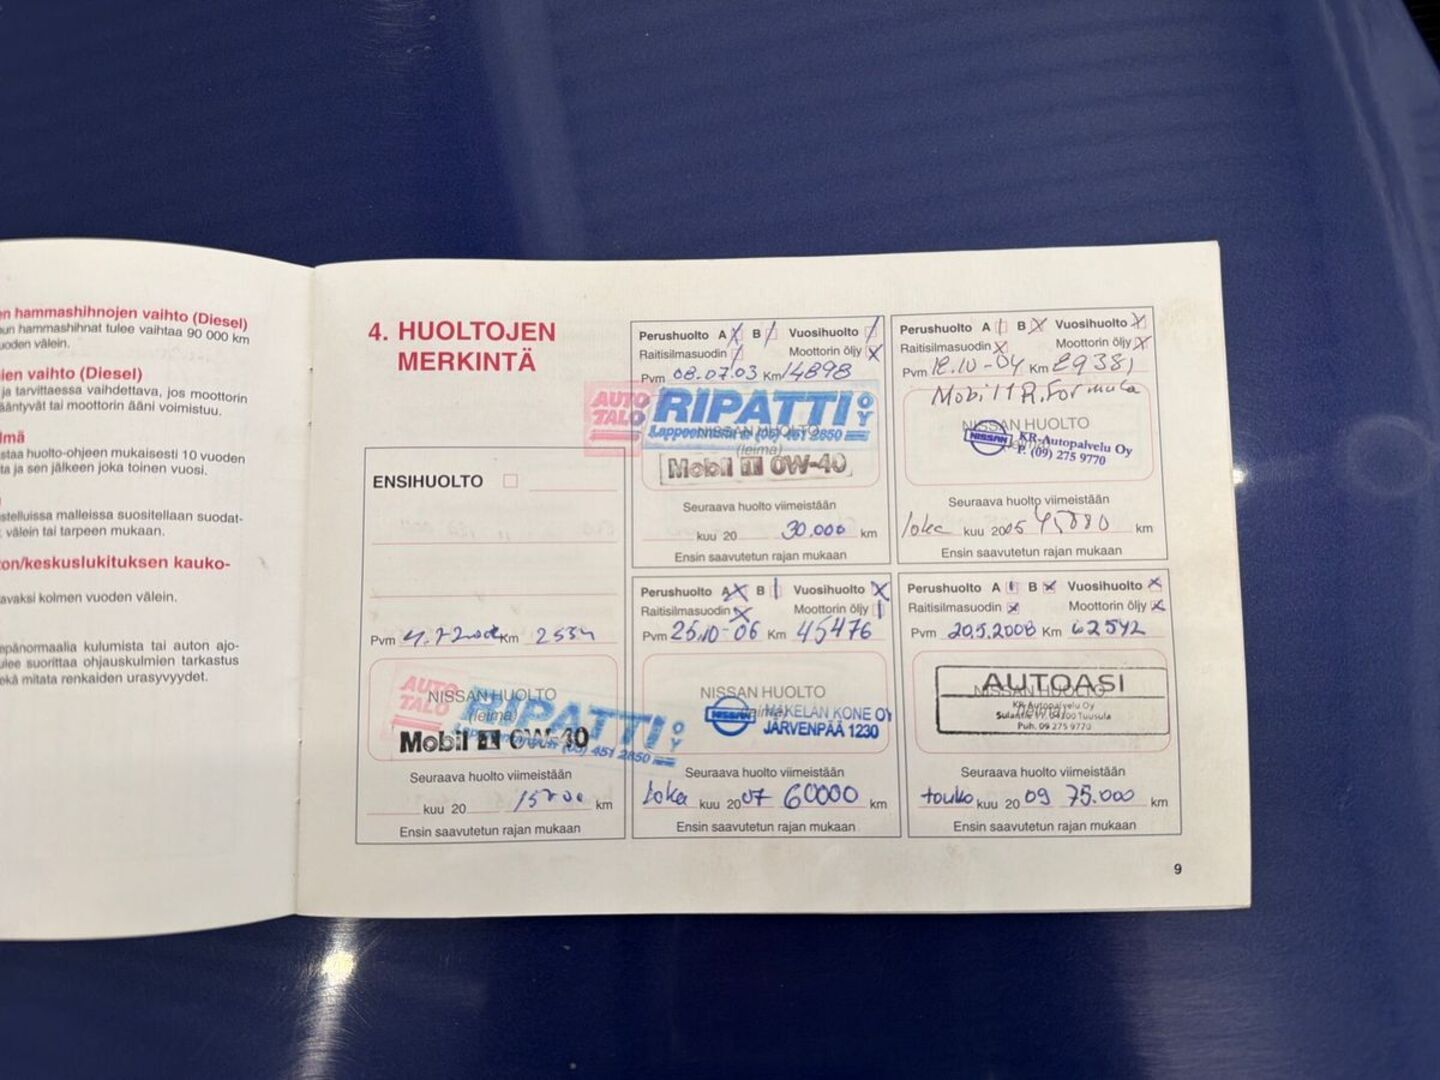 en hammashihnojen vaihto (Diesel)
un hammashihnat tulee vaihtaa 90 000 km
uoden välein.
ien vaihto (Diesel)
ja tarvittaessa vaihdettava, jos moottorin
ääntyvät tai moottorin ääni voimistuu.
lmä
staa huolto-ohjeen mukaisesti 10 vuoden
ta ja sen jälkeen joka toinen vuosi.
stelluissa malleissa suositellaan suodat-
välein tai tarpeen mukaan.
on/keskuslukituksen kauko-
avaksi kolmen vuoden välein.
epänormaalia kulumista tai auton ajo-
ulee suorittaa ohjauskulmien tarkastus
ekä mitata renkaiden urasyvyydet.
4. HUOLTOJEN
MERKINTÄ
ENSIHUOLTO
Pvm Km 2534
NISSAN HUOLTO
(leima)
AUTO TALO RIPATTI OY
(05) 451 2850
Mobil 1 0W-40
Seuraava huolto viimeistään
kuu 20 15000 km
Ensin saavutetun rajan mukaan
Perushuolto A B Vuosihuolto
Raitisilmasuodin Moottorin öljy
Pvm 08.07.03 Km 14898
AUTO TALO RIPATTI OY
Lappeenranta (05) 451 2850
NISSAN HUOLTO
(leima)
Mobil 1 0W-40
Seuraava huolto viimeistään
kuu 20 30.000 km
Ensin saavutetun rajan mukaan
Perushuolto A B Vuosihuolto
Raitisilmasuodin Moottorin öljy
Pvm 12.10-04 Km 29381
Mobil 1 R.Formula
NISSAN HUOLTO
NISSAN KR-Autopalvelu Oy
P. (09) 275 9770
Seuraava huolto viimeistään
loka kuu 2005 km
Ensin saavutetun rajan mukaan
Perushuolto A B Vuosihuolto
Raitisilmasuodin Moottorin öljy
Pvm 25.10-06 Km 45476
NISSAN HUOLTO
(leima)
NISSAN MÄKELÄN KONE OY
JÄRVENPÄÄ 1230
Seuraava huolto viimeistään
loka kuu 2007 60000 km
Ensin saavutetun rajan mukaan
Perushuolto A B Vuosihuolto
Raitisilmasuodin Moottorin öljy
Pvm 20.5.2008 Km 62542
NISSAN HUOLTO
(leima)
AUTOASI
KR-Autopalvelu Oy
04300 Tuusula
Puh. 09 275 9770
Seuraava huolto viimeistään
touko kuu 20 09 75.000 km
Ensin saavutetun rajan mukaan
9